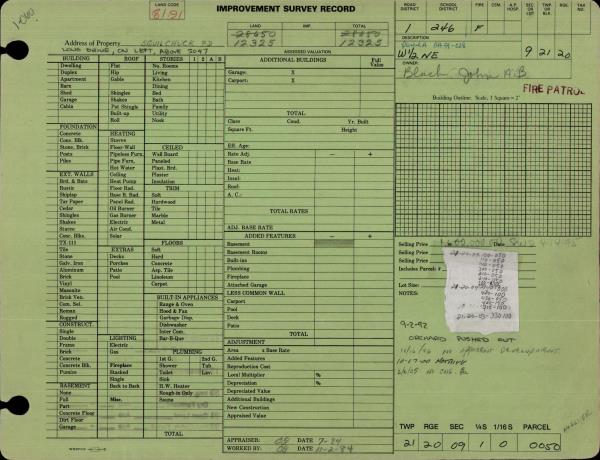 LAND CODE
8191
IMPROVEMENT SURVEY RECORD
LAND IMP. TOTAL
28650 28650
12325 12325
ROAD DISTRICT SCHOOL DISTRICT FIRE CEM. A.P. HOSP. SEC OR LOT TWP OR BLK RGE TAX NO.
1 246 F
W 1/2 NE 9 21 20
OWNER:
Black, John A.B.
FIRE PATROL
Address of Property SQUILCHUCK RD
LONG DRIVE, ON LEFT, ABOVE 3047
ASSESSED VALUATION
BUILDING ROOF STORIES 1 2 A B
Dwelling Flat No. Rooms
Duplex Hip Living
Apartment Gable Kitchen
Barn Dining
Shed Shingles Bed
Garage Shakes Bath
Cabin Pat Shingle Family
Built-up Utility
Roll Nook
FOUNDATION
Concrete HEATING
Conc. Blk. Stoves CEILED
Stone, Brick Floor-Wall Wall Board
Posts Pipeless Furn. Paneled
Piles Pipe Furn. Plast. Brd.
Hot Water Plaster
EXT. WALLS Ceiling Insulation
Brd. & Bats Heat Pump
Rustic Floor Rad. TRIM
Shiplap Base B. Rad. Soft
Tar Paper Panel Rad. Hardwood
Cedar Oil Burner Tile
Shingles Gas Burner Marble
Shakes Electric Metal
Stucco Air Cond.
Conc. Blks. Solar
TX-111 FLOORS
Tile EXTRAS Soft
Stone Decks Hard
Galv. Iron Porches Concrete
Aluminum Patio Asp. Tile
Brick Pool Linoleum
Vinyl Carpet
Masonite
Brick Ven. BUILT-IN APPLIANCES
Com. Sel. Range & Oven
Roman Hood & Fan
Rugged Garbage Disp.
CONSTRUCT. Dishwasher
Single Inter Com.
Double LIGHTING Bar-B-Que
Frame Electric
Brick Gas PLUMBING
Concrete 1st G. 2nd G.
Conc. Blk. Fireplace Shower Tub
Pumice Stacked Toilet Lav.
Single Sink
BASEMENT Back to Back H.W. Heater
None Rough-in Only
Full Misc. Sauna
Part
Concrete Floor
Dirt Floor
Garage
TOTAL
ADDITIONAL BUILDINGS Full Value
Garage: X
Carport: X
TOTAL
Class Cond. Yr. Built
Square Ft. Height
Eff. Age:
Rate Adj. − +
Base Rate
Heat:
Insul:
Roof:
A. C.:
TOTAL RATES
ADJ. BASE RATE
ADDED FEATURES − +
Basement
Basement Rooms
Built-ins
Plumbing
Fireplace
Attached Garage
LESS COMMON WALL
Carport
Pool
Deck
Patio
TOTAL
ADJUSTMENT
Area x Base Rate
Added Features
Reproduction Cost
Local Multiplier %
Depreciation %
Depreciated Value
Additional Buildings
New Construction
Appraised Value
APPRAISER: DATE 7-84
WORKED BY: DATE 11-2-84
Building Outline: Scale, 1 Square = 2'
Selling Price 1,600,000 Date 4-14-95
Selling Price
Selling Price
Includes Parcel #
Lot Size:
NOTES:
9-2-92
ORCHARD PUSHED OUT
10-17-00 NOTHING
TWP RGE SEC ¼S 1/16 S PARCEL
21 20 09 1 0 0050